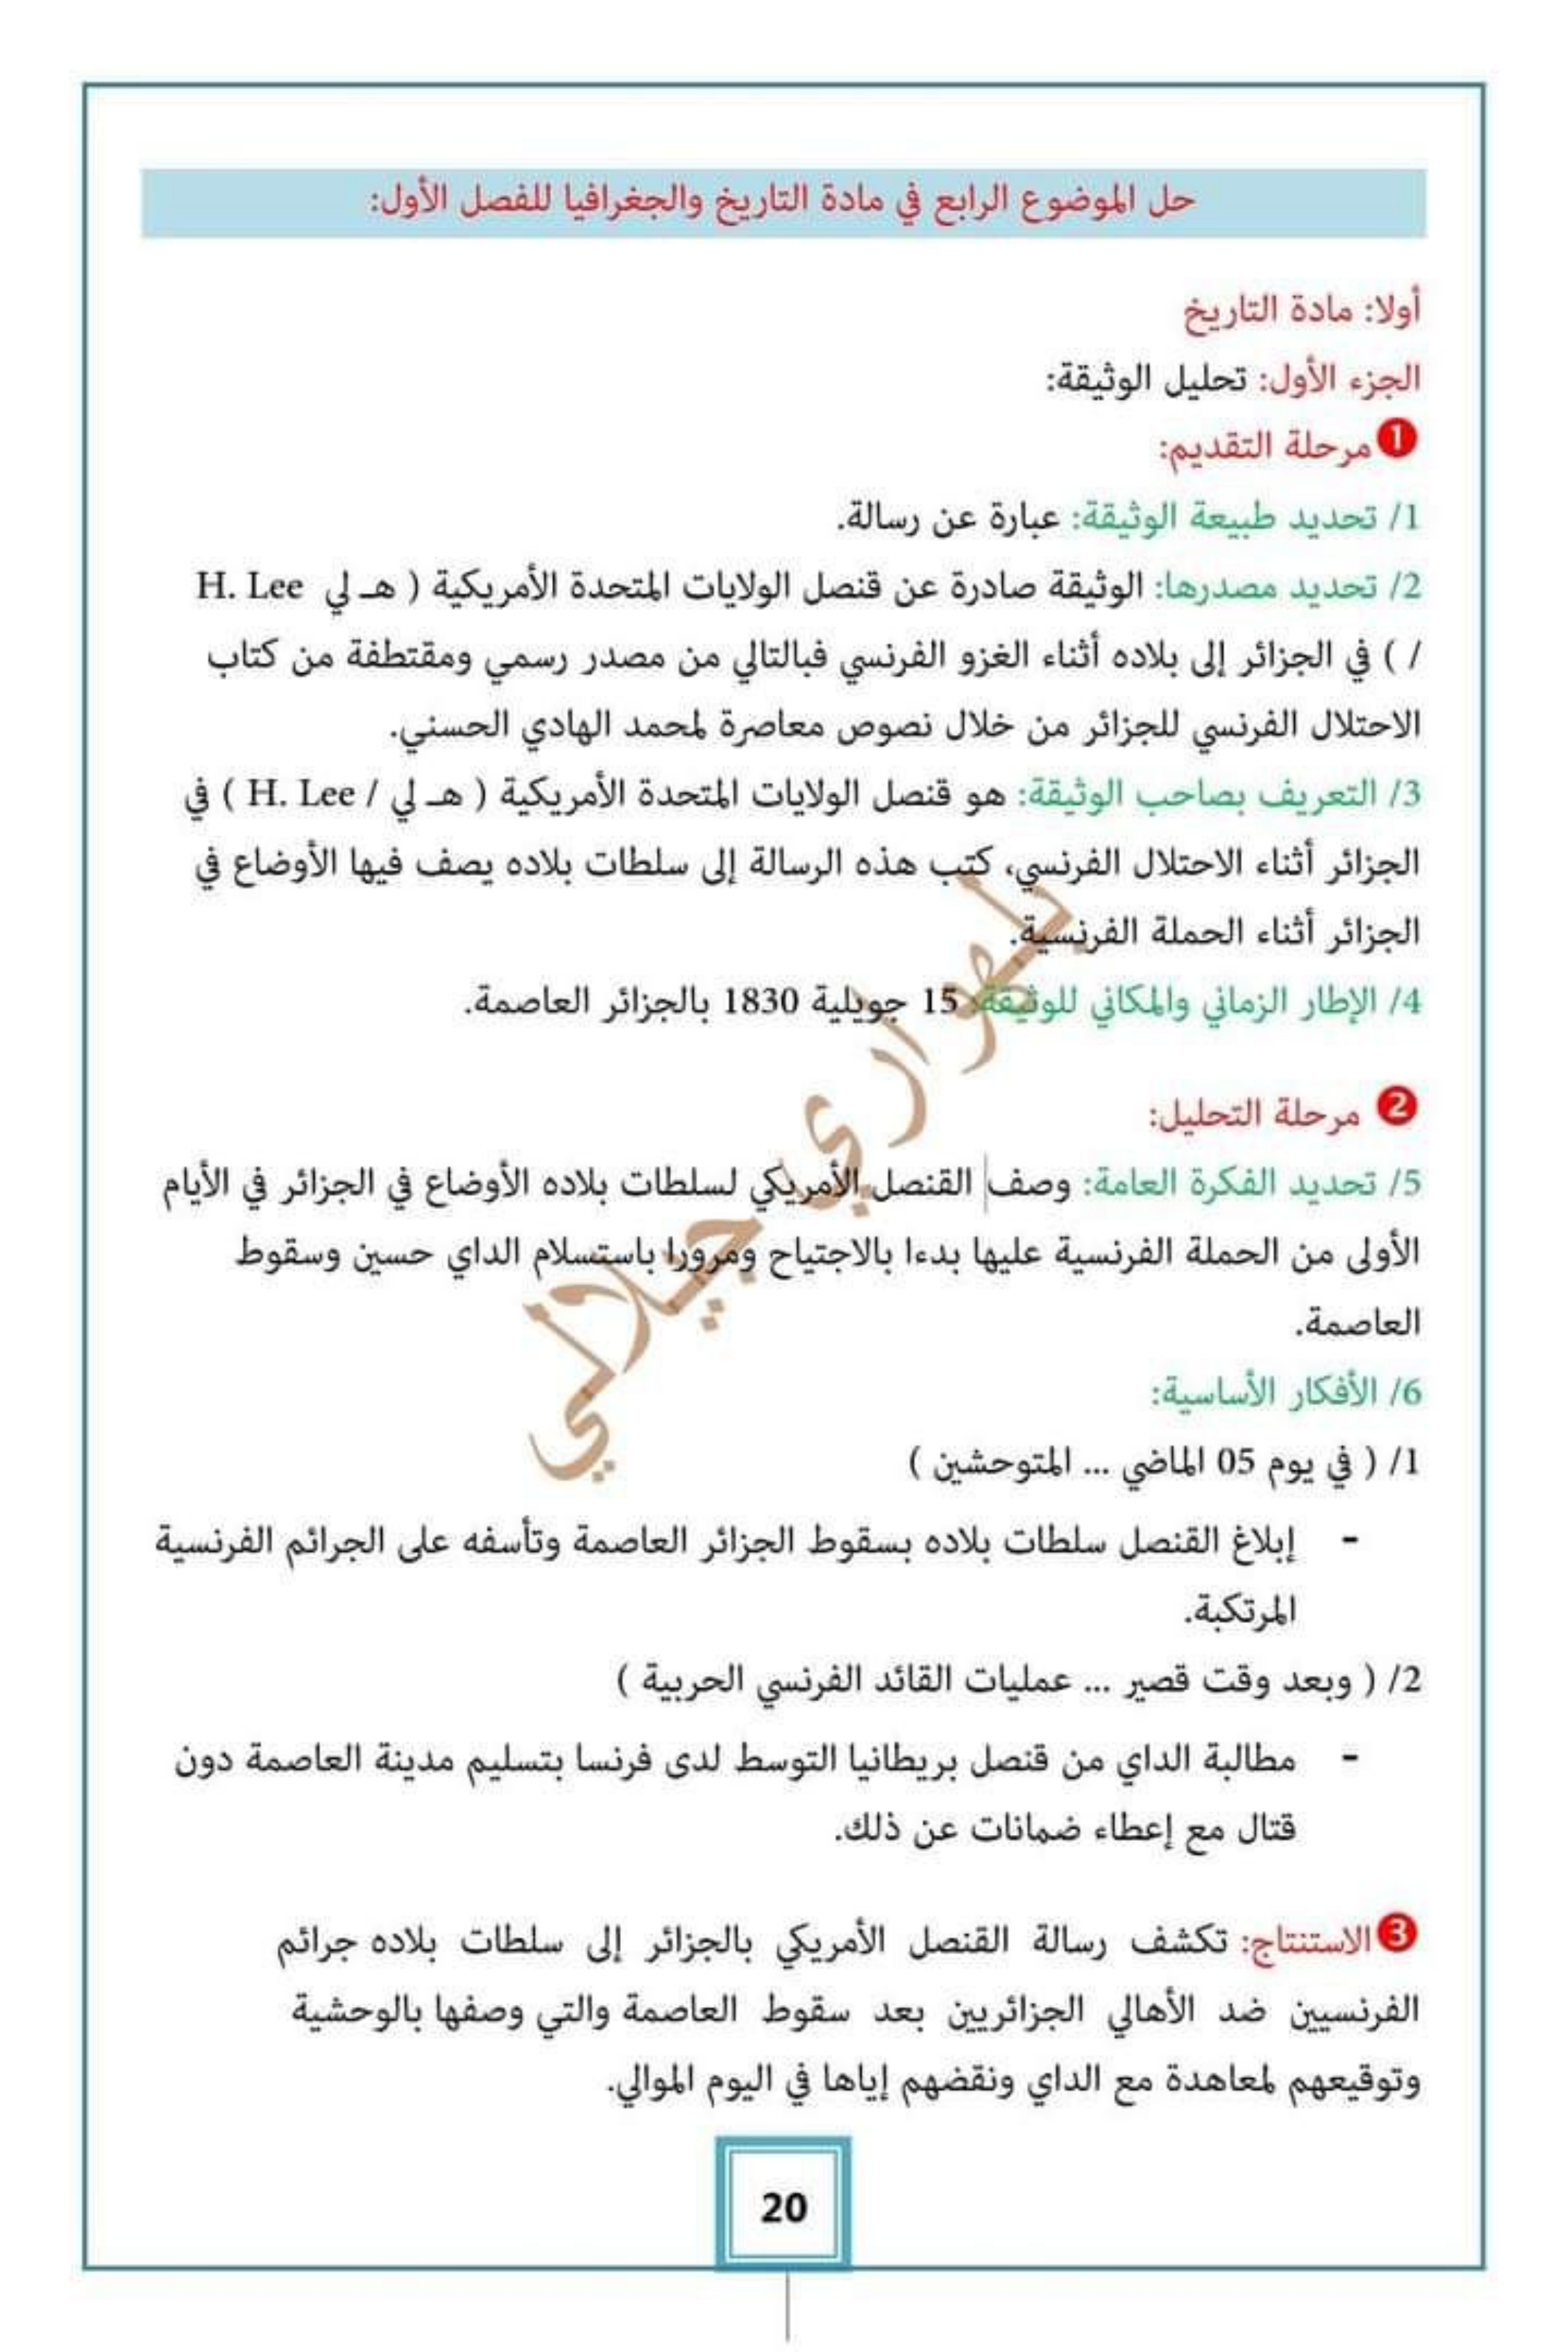 حل الموضوع الرابع في مادة التاريخ والجغرافيا للفصل الأول:
أولا: مادة التاريخ
الجزء الأول: تحليل الوثيقة:
❶ مرحلة التقديم:
1/ تحديد طبيعة الوثيقة: عبارة عن رسالة.
2/ تحديد مصدرها: الوثيقة صادرة عن قنصل الولايات المتحدة الأمريكية ( هـ لي H. Lee
/ ) في الجزائر إلى بلاده أثناء الغزو الفرنسي فبالتالي من مصدر رسمي ومقتطفة من كتاب
الاحتلال الفرنسي للجزائر من خلال نصوص معاصرة لمحمد الهادي الحسني.
3/ التعريف بصاحب الوثيقة: هو قنصل الولايات المتحدة الأمريكية ( هـ لي / H. Lee ) في
الجزائر أثناء الاحتلال الفرنسي، كتب هذه الرسالة إلى سلطات بلاده يصف فيها الأوضاع في
الجزائر أثناء الحملة الفرنسية.
4/ الإطار الزماني والمكاني للوثيقة: 15 جويلية 1830 بالجزائر العاصمة.
❷ مرحلة التحليل:
5/ تحديد الفكرة العامة: وصف القنصل الأمريكي لسلطات بلاده الأوضاع في الجزائر في الأيام
الأولى من الحملة الفرنسية عليها بدءا بالاجتياح ومرورا باستسلام الداي حسين وسقوط
العاصمة.
6/ الأفكار الأساسية:
1/ ( في يوم 05 الماضي ... المتوحشين )
- إبلاغ القنصل سلطات بلاده بسقوط الجزائر العاصمة وتأسفه على الجرائم الفرنسية
المرتكبة.
2/ ( وبعد وقت قصير ... عمليات القائد الفرنسي الحربية )
- مطالبة الداي من قنصل بريطانيا التوسط لدى فرنسا بتسليم مدينة العاصمة دون
قتال مع إعطاء ضمانات عن ذلك.
❸ الاستنتاج: تكشف رسالة القنصل الأمريكي بالجزائر إلى سلطات بلاده جرائم
الفرنسيين ضد الأهالي الجزائريين بعد سقوط العاصمة والتي وصفها بالوحشية
وتوقيعهم لمعاهدة مع الداي ونقضهم إياها في اليوم الموالي.
بلهواري جيلالي
20